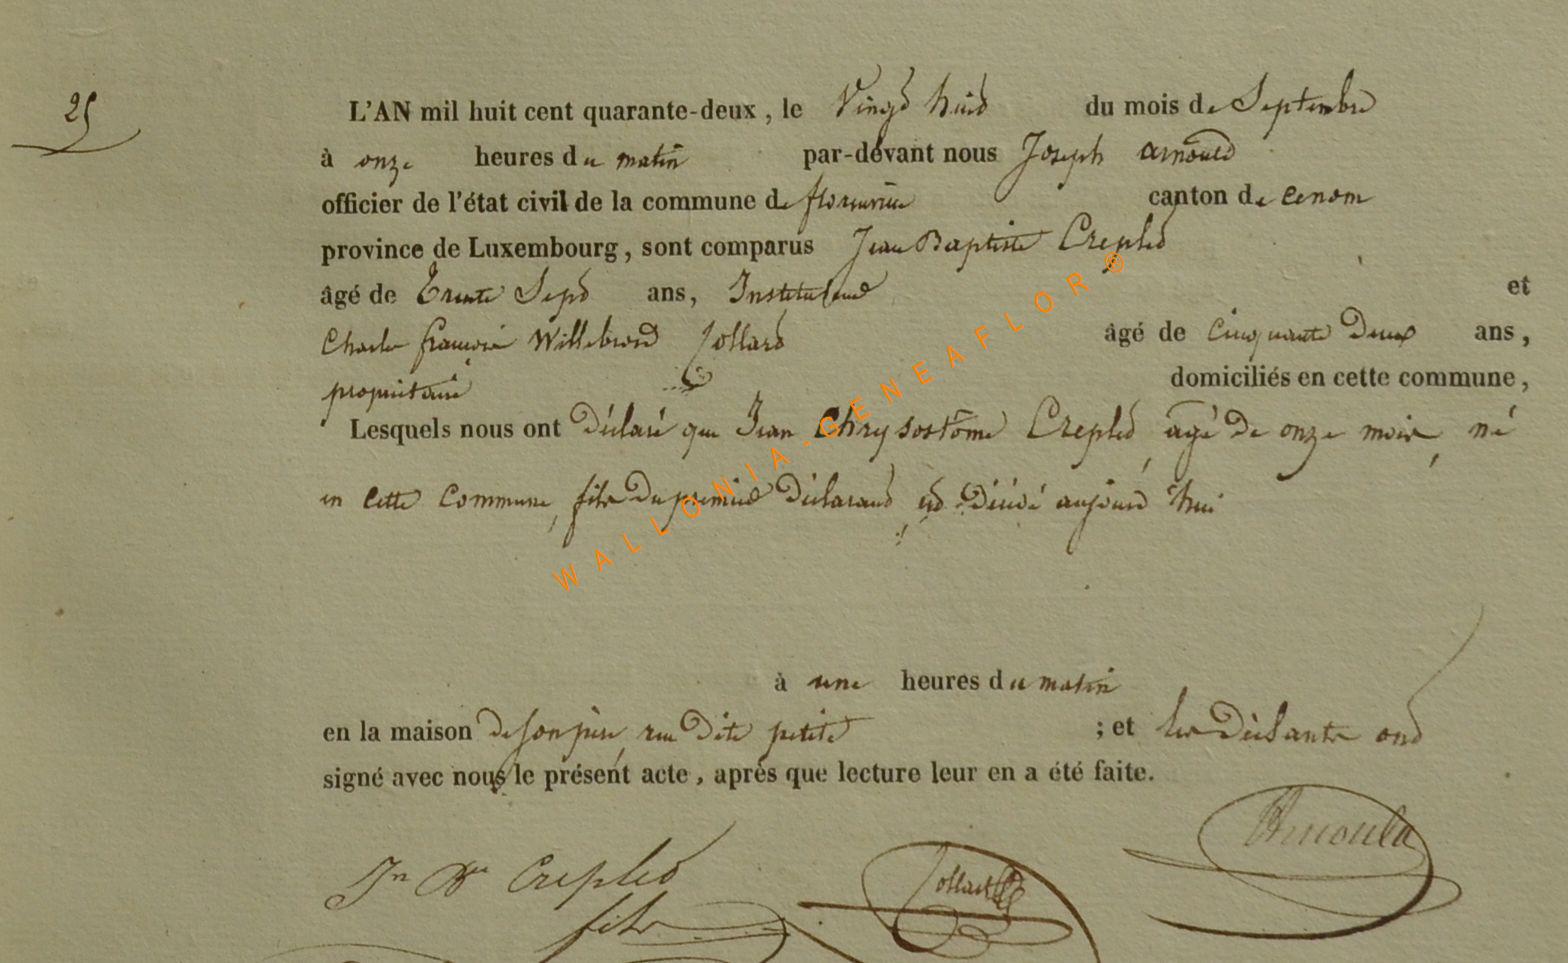 25
L'AN mil huit cent quarante-deux, le Vingt huit du mois de Septembre
à onze heures du matin par-devant nous Joseph arnould
officier de l'état civil de la commune de florenville canton de
province de Luxembourg, sont comparus Jean Baptiste Creplet
âgé de Trente Sept ans, Instituteur et
Charles françois Willebrord Jollard âgé de Cinquante Deux ans,
propriétaire domiciliés en cette commune,
Lesquels nous ont Déclaré que Jean Chrysostôme Creplet, agé de onze mois, né
en cette Commune, fils Du premier Déclarant, est Décédé aujourd'hui
à une heures du matin
en la maison de son père, rue Dite petite ; et les ont
signé avec nous le présent acte, après que lecture leur en a été faite.
Jn Bte Creplet
fils
Jollard
Arnould
WALLONIA-GENEAFLOR ®